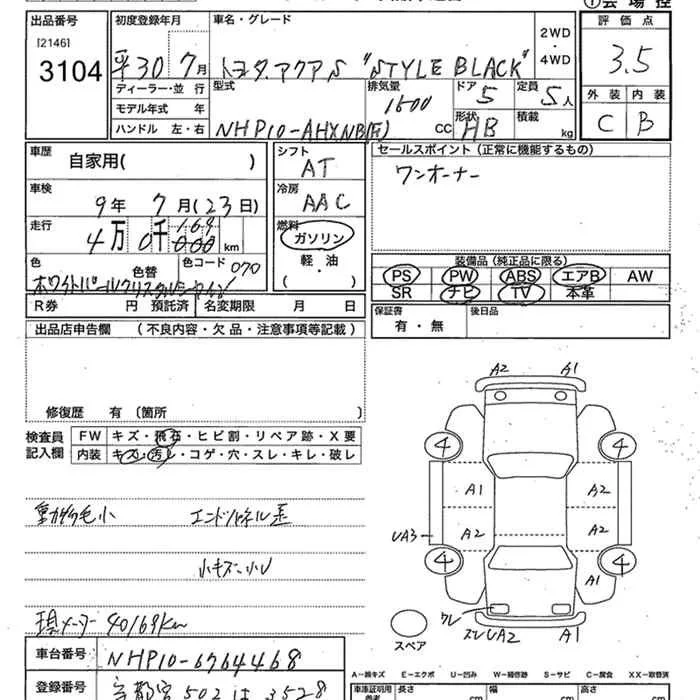 出品番号 初度登録年月 車名・グレード 評価点
[2146]
3104 平30年7月 トヨタ アクア S "STYLE BLACK" 2WD・4WD 3.5
ディーラー・並行 型式 排気量 ドア 5 定員 5人 外装 内装
モデル年式 年 1500 形状 積載 C B
ハンドル 左・右 NHP10-AHXNB(F) CC HB kg
車歴 自家用( ) シフト AT セールスポイント(正常に機能するもの)
車検 9年 7月(23日) 冷房 AAC ワンオーナー
走行 4万0千169km 燃料 ガソリン 軽・油 ( )
装備品(純正品に限る)
色 色替 色コード 070 PS PW ABS エアB AW
ホワイトパールクリスタルシャイン SR ナビ TV 本革
R券 円 預託済 名変期限 月 日 保証書 有・無 後日品
出品店申告欄 (不良内容・欠品・注意事項等記載)
修復歴 有 〔箇所 〕
検査員記入欄 FW キズ・飛石・ヒビ割・リペア跡・X要
内装 キズ・汚レ・コゲ・穴・スレ・キレ・破レ
A2 A1
4 4
A1 A2
エンドパネル歪
UA3 A2 A2
小キズ・小U
4 4
A1
現メーター 40169km
ワレ
スレUA2 A1
スペア
車台番号 NHP10-6764468
A-線キズ E-エクボ U-凹み W-補修跡 S-サビ C-腐食 XX-取替済
登録番号 宇都宮 502 は 3528
車庫証明用 長さ cm 幅 cm 高さ cm